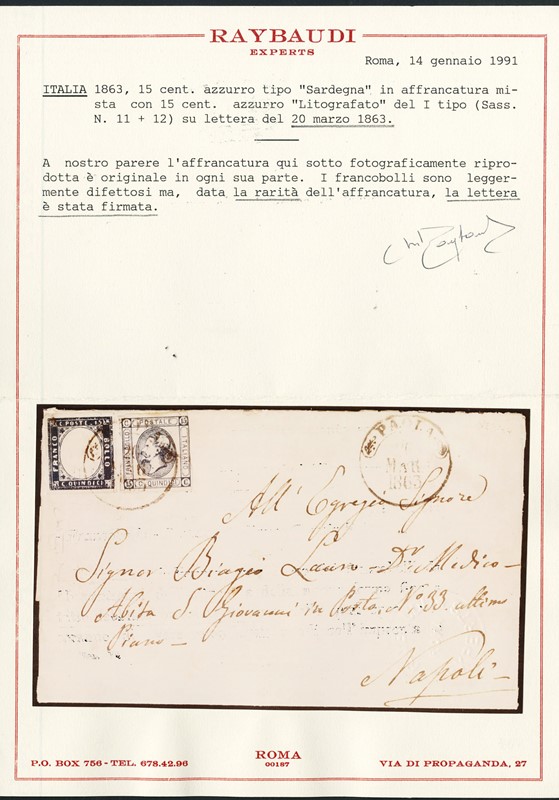 RAYBAUDI
EXPERTS
Roma, 14 gennaio 1991
ITALIA 1863, 15 cent. azzurro tipo "Sardegna" in affrancatura mi-
sta con 15 cent. azzurro "Litografato" del I tipo (Sass.
N. 11 + 12) su lettera del 20 marzo 1863.
A nostro parere l'affrancatura qui sotto fotograficamente ripro-
dotta è originale in ogni sua parte. I francobolli sono legger-
mente difettosi ma, data la rarità dell'affrancatura, la lettera
è stata firmata.
C. POSTE 15
FRANCO
BOLLO
C. QUINDICI
POSTALE
ITALIANO
C. QUINDICI
PAOLA
MAR
1863
All' Egregio Signore
Signor Biagio Lauro Dr Medico
Abita S. Giovanni in Porta, No 33. ultimo
Piano
Napoli
ROMA
00187
P.O. BOX 756 - TEL. 678.42.96
VIA DI PROPAGANDA, 27